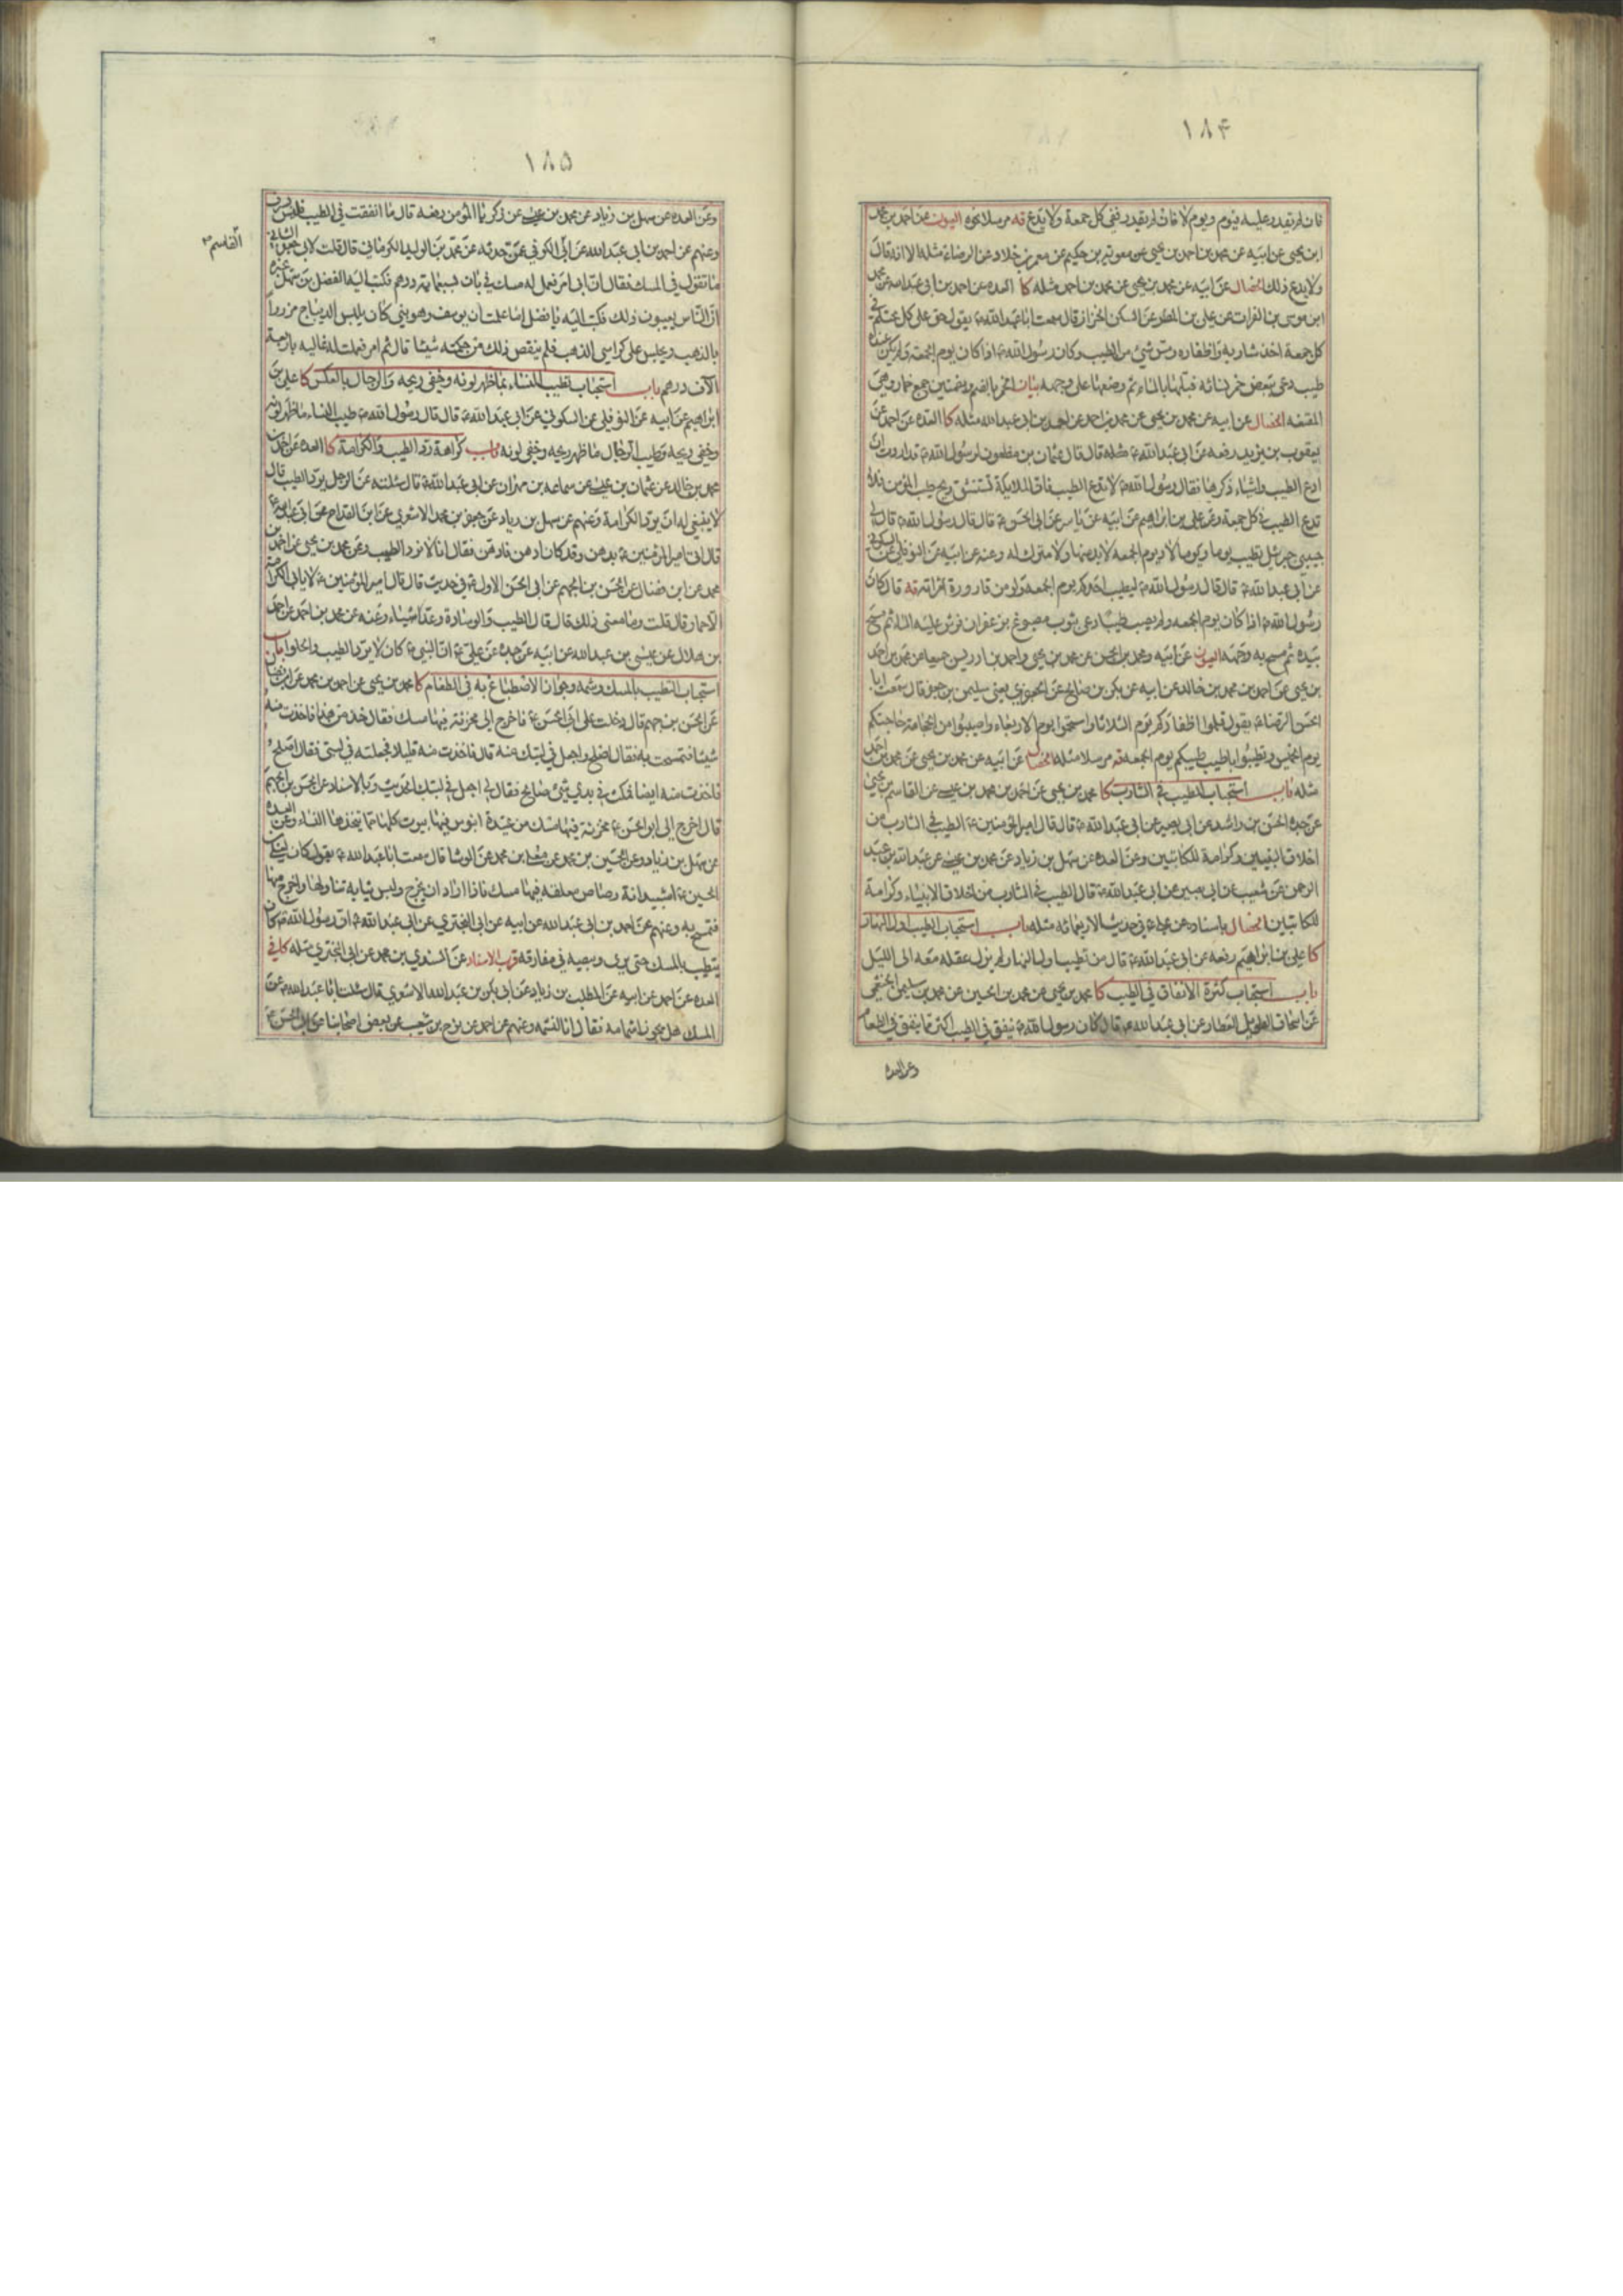 ١٨۴
فان لم يقدر عليه فيوم ويوم لا فان لم يقدر ففى كل جمعة ولا يدع قه مرسلا نحوه العيون عن احمد بن محمد
ابن يحيى عن ابيه عن محمد بن احمد بن يحيى عن معوية بن حكيم عن معمر بن خلاد عن الرضاء مثله الا انه قال
ولا يدع ذلك الخصال عن ابيه عن محمد بن يحيى عن محمد بن احمد مثله كا العده عن احمد بن ابى عبد الله عن محمد
ابن موسى بن الفرات عن على بن المطر عن السكن الخزاز قال سمعت ابا عبد الله ع يقول حق على كل محتلم فى
كل جمعة اخذ شاربه واظفاره ومس شئ من الطيب وكان رسول الله ص اذا كان يوم الجمعة ولم يكن عنده
طيب دعى ببعض خمر نسائه فبلها بالماء ثم وضعها على وجهه بيان الخمر بالضم وبضمتين جمع خمار وهى
المقنعه الخصال عن ابيه عن محمد بن يحيى عن محمد بن احمد عن احمد بن ابى عبد الله مثله كا العده عن احمد عن
يعقوب بن يزيد رفعه عن ابى عبد الله ع مثله قال قال عثمان بن مظعون لرسول الله ص قد اردت ان
ادع الطيب واشياء ذكرها فقال رسول الله ص لا تدع الطيب فان الملائكة تستنشق ريح طيب المؤمن فلا
تدع الطيب فى كل جمعة وعن على بن ابراهيم عن ابيه عن ياسر عن ابى الحسن ع قال قال رسول الله ص قال لى
حبيبى جبرئيل تطيب يوما ويوما لا ويوم الجمعة لا بد منها ولا متروك له وعنه عن ابيه عن النوفلى عن السكونى
عن ابى عبد الله ع قال قال رسول الله ص ليطيب احدكم يوم الجمعة ولو من قارورة امراته قه قال كان
رسول الله ص اذا كان يوم الجمعه ولم يصب طيبا دعى بثوب مصبوغ بزعفران فرش عليه الماء ثم مسح
بيده ثم مسح به وجهه العيون عن ابيه ومحمد بن الحسن عن محمد بن يحيى واحمد بن ادريس جميعا عن محمد بن احمد
بن يحيى عن احمد بن محمد بن خالد عن ابيه عن بكر بن صالح عن الجعفرى يعنى سليمن بن جعفر قال سمعت ابا
الحسن الرضاء ع يقول قلموا اظفاركم يوم الثلاثا واستحموا يوم الاربعاء واصيبوا من الحجامة حاجتكم
يوم الخميس وتطيبوا باطيب طيبكم يوم الجمعه قه مرسلا مثله الخصال عن ابيه عن محمد بن يحيى عن محمد بن احمد
مثله باب استحباب الطيب فى الشارب كا محمد بن يحيى عن احمد بن محمد بن عيسى عن القاسم بن يحيى
عن جده الحسن بن راشد عن ابى بصير عن ابى عبد الله ع قال قال امير المؤمنين ع الطيب فى الشارب من
اخلاق النبيين وكرامة للكاتبين وعن العده عن سهل بن زياد عن محمد بن عيسى عن عبد الله بن عبد
الرحمن عن شعيب عن ابى بصير عن ابى عبد الله ع قال الطيب فى الشارب من اخلاق الانبياء وكرامة
للكاتبين الخصال باسناده عن على ع فى حديث الاربعمائه مثله باب استحباب الطيب اول النهار
كا على بن ابراهيم رفعه عن ابى عبد الله ع قال من تطيب اول النهار لم يزل عقله معه الى الليل
باب استحباب كثرة الانفاق فى الطيب كا محمد بن يحيى عن محمد بن الحسين عن محمد بن سليمن الخثعمى
عن اسحاق الطويل العطار عن ابى عبد الله ع قال كان رسول الله ص ينفق فى الطيب اكثر مما ينفق فى الطعام
وعن العده
١٨۵
وعن العده عن سهل بن زياد عن محمد بن عيسى عن زكريا المؤمن رفعه قال ما انفقت فى الطيب فليس بسرف
وعنهم عن احمد بن ابى عبد الله عن ابى الكوفى عمن حدثه عن محمد بن الوليد الكرمانى قال قلت لابى جعفر الثانى
القاسم
ما تقول فى المسك فقال ان ابى امر فعمل له مسك فى بان بسبعمائة درهم فكتب اليه الفضل بن سهل يخبره
ان الناس يعيبون ذلك فكتب اليه يا فضل اما علمت ان يوسف وهو نبى كان يلبس الديباج مزررا
بالذهب ويجلس على كراسى الذهب فلم ينقص ذلك من حكمته شيئا قال ثم امر فعملت له غاليه باربعة
الاف درهم باب استحباب تطيب النساء بما ظهر لونه وخفى ريحه والرجال بالعكس كا على بن
ابراهيم عن ابيه عن النوفلى عن السكونى عن ابى عبد الله ع قال قال رسول الله ص طيب النساء ما ظهر لونه
وخفى ريحه وطيب الرجال ما ظهر ريحه وخفى لونه باب كراهة رد الطيب والكرامة كا العده عن احمد بن
محمد بن خالد عن عثمان بن عيسى عن سماعه بن مهران عن ابى عبد الله ع قال سئلته عن الرجل يرد الطيب قال
لا ينبغى له ان يرد الكرامة وعنهم عن سهل بن زياد عن جعفر بن محمد الاشعرى عن ابن القداح عن ابى عبد الله ع
قال اتى امير المؤمنين ع بدهن وقد كان ادهن فادهن فقال انا لا نرد الطيب وعن محمد بن يحيى عن احمد بن
محمد عن ابن فضال عن الحسن بن الجهم عن ابى الحسن الاول ع فى حديث قال قال امير المؤمنين ع لا يابى الكرامة
الا حمار قال قلت وما معنى ذلك قال قال الطيب والوسادة وعد اشياء وعنه عن محمد بن احمد عن احمد
بن هلال عن عيسى بن عبد الله عن ابيه عن جده عن على ع ان النبى ص كان لا يرد الطيب والحلوا باب
استحباب التطيب بالمسك وشمه وجواز الاصطباغ به فى الطعام كا محمد بن يحيى عن احمد بن محمد عن ابن فضال
عن الحسن بن جهم قال دخلت على ابى الحسن ع فاخرج الى مخزنة فيها مسك فقال خذ من هذا فاخذت منه
شيئا فتمسحت به فقال اصلح واجعل فى لبتك منه قال فاخذت منه قليلا فجعلته فى لبتى فقال اصلح
فاخذت منه ايضا فمكث فى يدى شئ صالح فقال لى اجعل فى لبتك الحديث وبالاسناد عن الحسن بن الجهم
قال اخرج الى ابو الحسن ع مخزنة فيها مسك من عتيدة ابنوس فيها بيوت كلها مما يتخذها النساء وعن العده
عن سهل بن زياد وعن الحسين بن محمد عن معلى بن محمد عن الوشا قال سمعت ابا عبد الله ع يقول كان لعلى بن
الحسين ع اشبيدانة رصاص معلقه فيها مسك فاذا اراد ان يخرج ولبس ثيابه تناولها واخرج منها
فتمسح به وعنهم عن احمد بن ابى عبد الله عن ابيه عن ابى البخترى عن ابى عبد الله ع ان رسول الله ص كان
يتطيب بالمسك حتى يرى وبيصه فى مفارقه قرب الاسناد عن السندى بن محمد عن ابى البخترى مثله كا فى
العده عن احمد عن ابيه عن المطلب بن زياد عن ابى بكر بن عبد الله الاشعرى قال سئلت ابا عبد الله ع عن
المسك هل يجوز اشمامه فقال انا لنشمه وعنهم عن احمد عن نوح بن شعيب عن بعض اصحابنا عن ابى الحسن ع